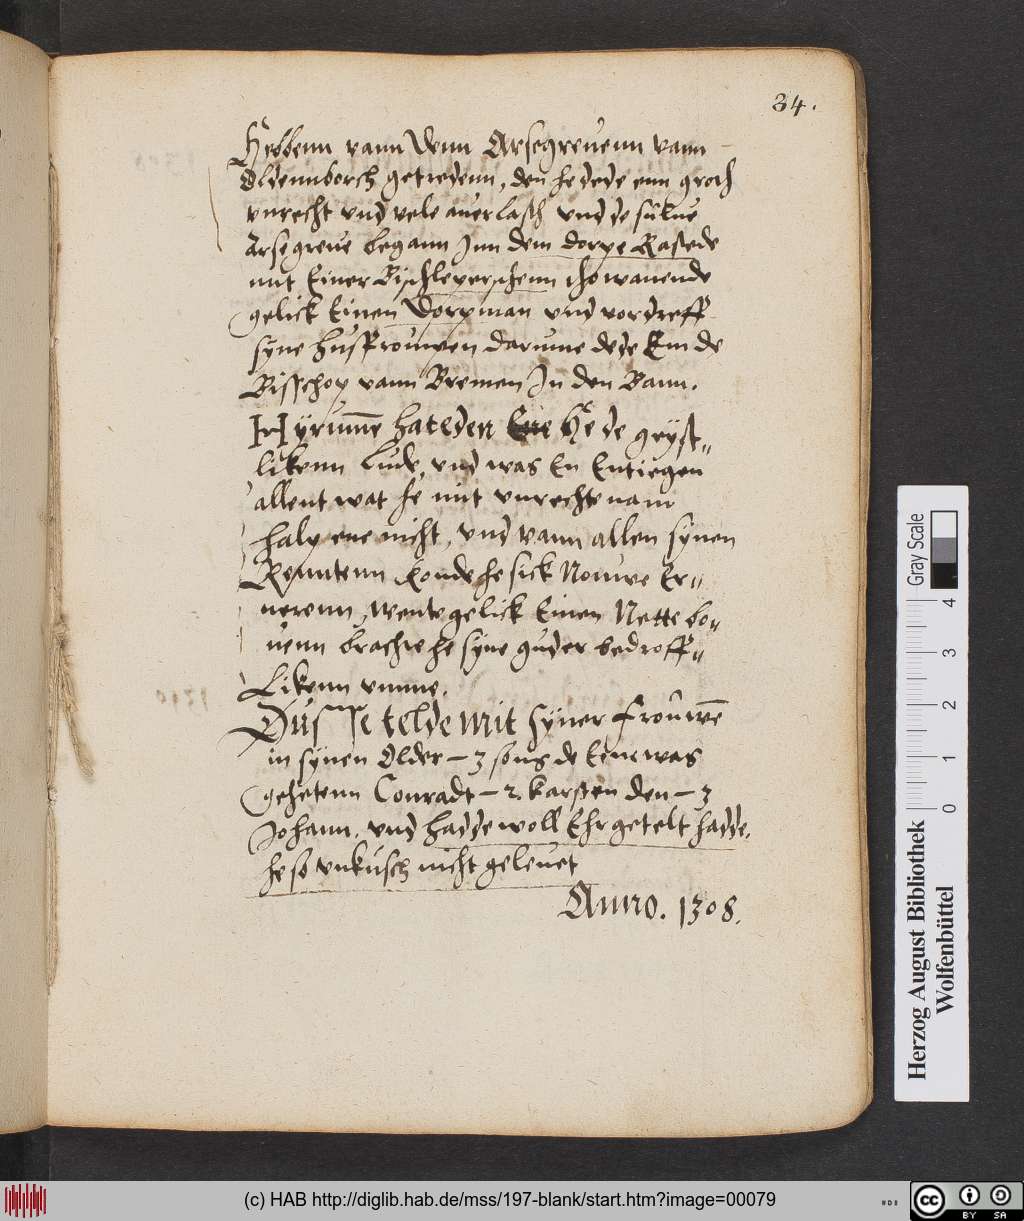 34.
Hebbenn vann Denn Arsegrevenn vann
Oldennborch geredenn, den he dede enn groth
vnrecht vnd vele auerlast vnd de sulue
Arsegreue began Inn dem dorpe Rastede
mit Einer Bischleperschenn tho wanende
gelick Einen Dorpman vnd vordreff
syne husfrouwen darumme dede Em de
Bisschop vann Bremen In den Bann.
Hyrumme hateden He de geyst„
likenn Lude, vnd was En Entiegen
allent wat he mit vnrechte nam
halp ene nicht, vnd vann allen synen
Renntenn konde he sick Nouwe Er„
nerenn, wente gelick Einen Nette bo„
uenn brachte he syne guder bedroff„
Likenn vmme.
Dusse telde mit syner frouwen
in synen Older – 3 sons de Eine was
gehetenn Conradt – 2. karsten den – 3
Johann. vnd hadde woll Ehr getelt hadde.
he so vnkusch nicht geleuet
Anno. 1308.
Gray Scale
0 1 2 3 4
Herzog August Bibliothek
Wolfenbüttel
(c) HAB http://diglib.hab.de/mss/197-blank/start.htm?image=00079
cc BY SA